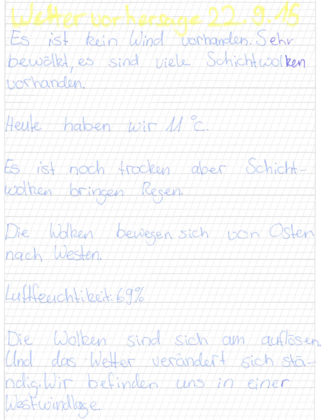 Wettervorhersage 22.9.15
Es ist kein Wind vorhanden. Sehr
bewölkt, es sind viele Schichtwolken
vorhanden.
Heute haben wir 11 °C.
Es ist noch trocken aber Schicht-
wolken bringen Regen.
Die Wolken bewegen sich von Osten
nach Westen.
Luftfeuchtikeit: 69%
Die Wolken sind sich am auflösen
Und das Wetter verändert sich stä-
ndig. Wir befinden uns in einer
Westwindlage.